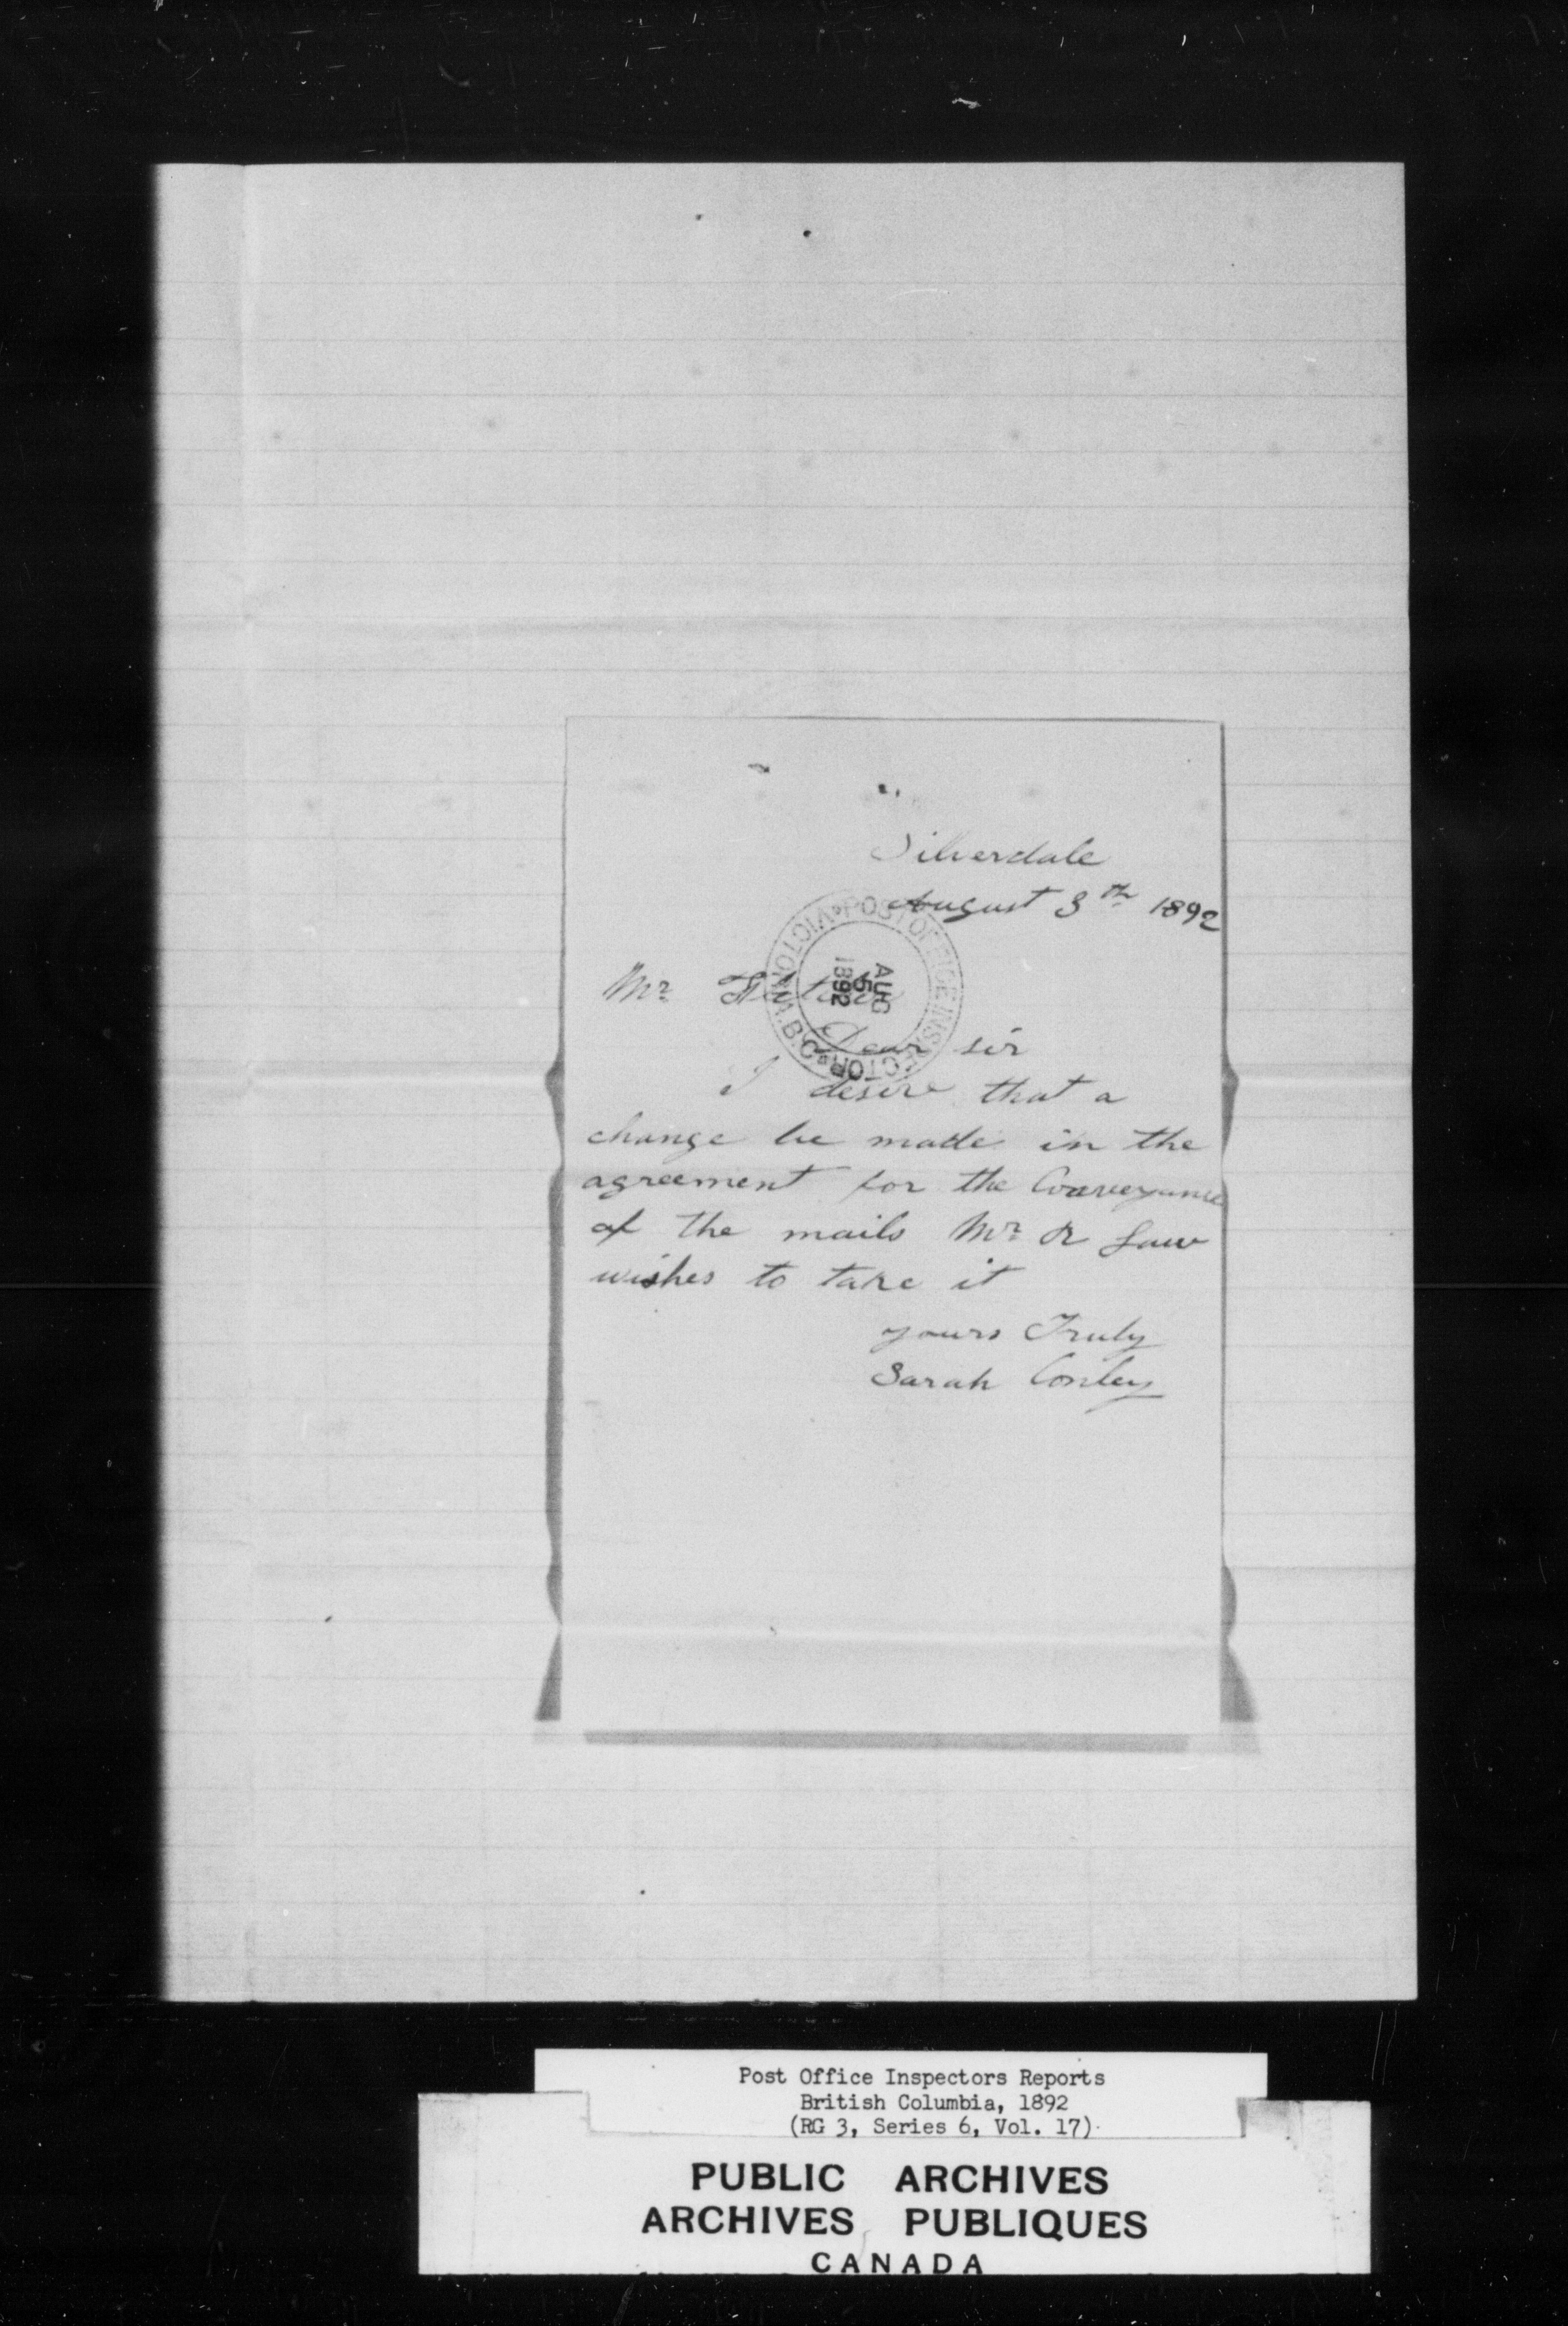 Silverdale
August 3th 1892
Mr
POST OFFICE INSPECTOR VICTORIA B.C.
AUG
5
1892
Dear sir
I desire that a
change be made in the
agreement for the Conveyance
of the mails Mr R Law
wishes to take it
yours Truly
Sarah Conley
Post Office Inspectors Reports
British Columbia, 1892
(RG 3, Series 6, Vol. 17)
PUBLIC ARCHIVES
ARCHIVES PUBLIQUES
CANADA